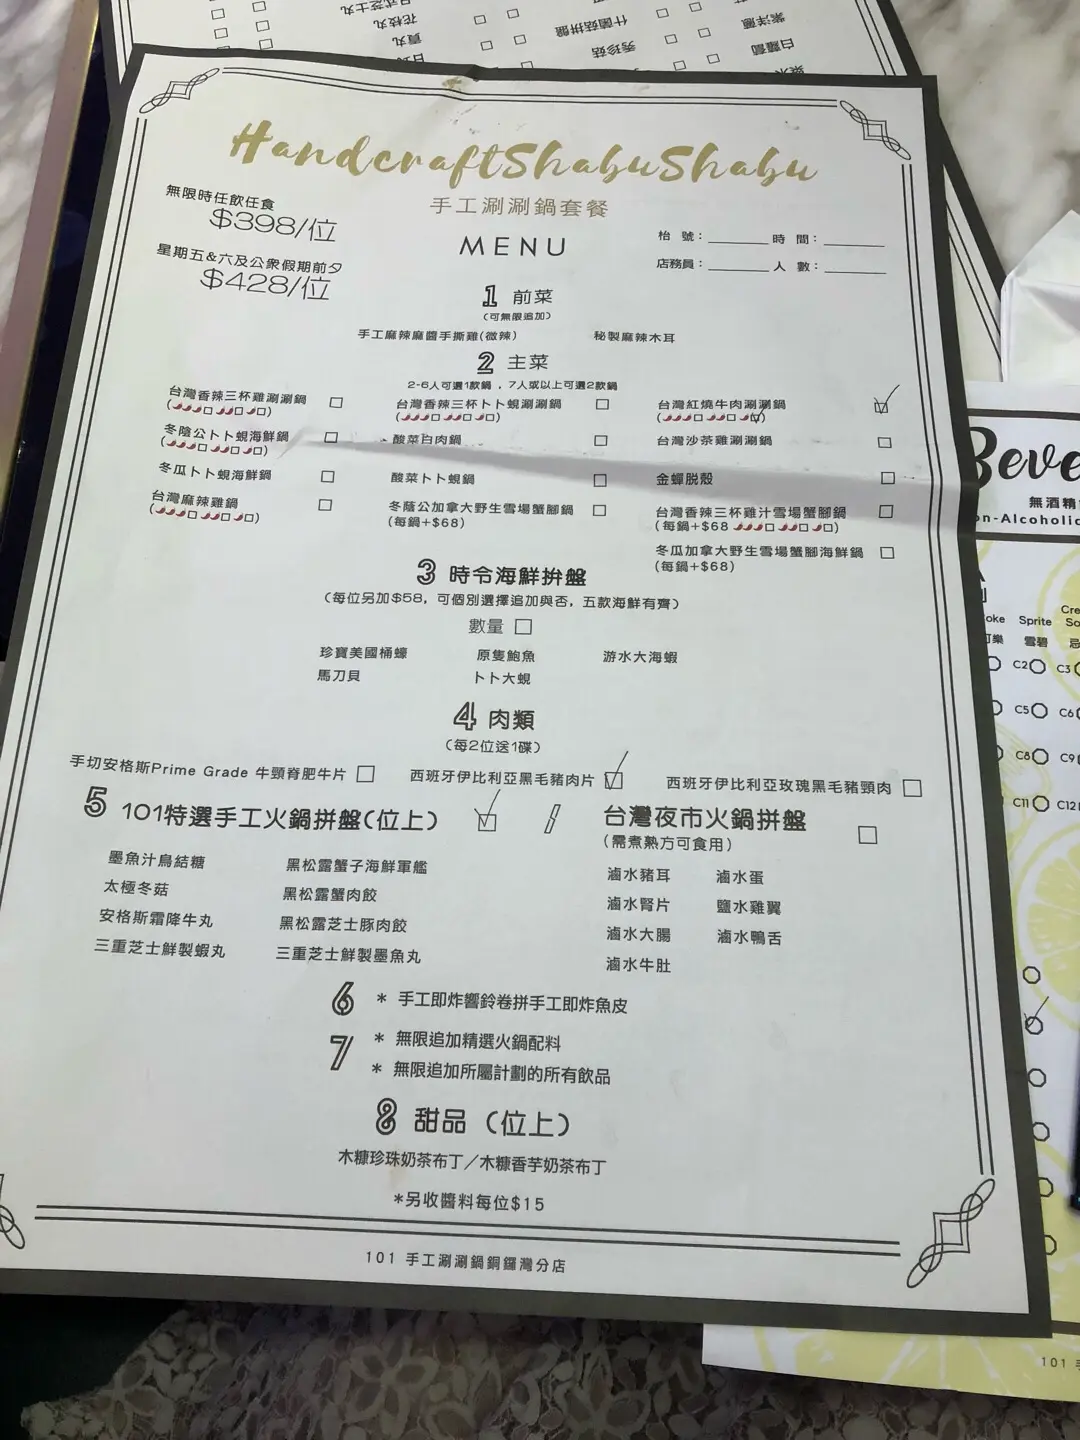 HandcraftShabuShabu
手工涮涮鍋套餐
MENU
無限時任飲任食
$398/位
星期五&六及公眾假期前夕
$428/位
枱 號：______ 時 間：______
店務員：______ 人 數：______
1 前菜
(可無限追加)
手工麻辣麻醬手撕雞(微辣) 秘製麻辣木耳
2 主菜
2-6人可選1款鍋，7人或以上可選2款鍋
台灣香辣三杯雞涮涮鍋 台灣香辣三杯卜卜蜆涮涮鍋 台灣紅燒牛肉涮涮鍋
冬陰公卜卜蜆海鮮鍋 酸菜白肉鍋 台灣沙茶雞涮涮鍋
冬瓜卜卜蜆海鮮鍋 酸菜卜卜蜆鍋 金蟬脫殼
台灣麻辣雞鍋 冬蔭公加拿大野生雪場蟹腳鍋 台灣香辣三杯雞汁雪場蟹腳鍋
(每鍋+$68) (每鍋+$68)
冬瓜加拿大野生雪場蟹腳海鮮鍋
(每鍋+$68)
3 時令海鮮拚盤
(每位另加$58，可個別選擇追加與否，五款海鮮有齊)
數量
珍寶美國桶蠔 原隻鮑魚 游水大海蝦
馬刀貝 卜卜大蜆
4 肉類
(每2位送1碟)
手切安格斯Prime Grade 牛頸脊肥牛片 西班牙伊比利亞黑毛豬肉片 西班牙伊比利亞玫瑰黑毛豬頸肉
5 101特選手工火鍋拼盤(位上) / 台灣夜市火鍋拼盤
(需煮熟方可食用)
墨魚汁鳥結糖 黑松露蟹子海鮮軍艦 滷水豬耳 滷水蛋
太極冬菇 黑松露蟹肉餃 滷水腎片 鹽水雞翼
安格斯霜降牛丸 黑松露芝士豚肉餃 滷水大腸 滷水鴨舌
三重芝士鮮製蝦丸 三重芝士鮮製墨魚丸 滷水牛肚
6 * 手工即炸響鈴卷拼手工即炸魚皮
7 * 無限追加精選火鍋配料
* 無限追加所屬計劃的所有飲品
8 甜品（位上）
木糠珍珠奶茶布丁／木糠香芋奶茶布丁
*另收醬料每位$15
101 手工涮涮鍋銅鑼灣分店
Beve
無酒精
on-Alcoholic
oke Sprite Cre
可樂 雪碧 忌
C2 C3
C5 C6
C8 C9
C11 C12
101
日式芝士丸
花枝丸
貢丸
什菌菇拼盤
秀珍菇
紫洋蔥
白蘿蔔